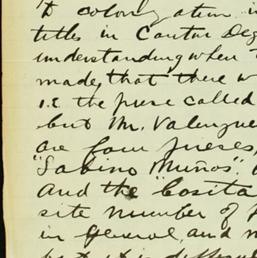 to colony atem i
titles in Cantor Deg
understanding when
made, that there w
i.e. the prese called
but Mr. Valenzue
are four preses,
"Sabino Muños".
And the "Cosita
site number of
in general, and n